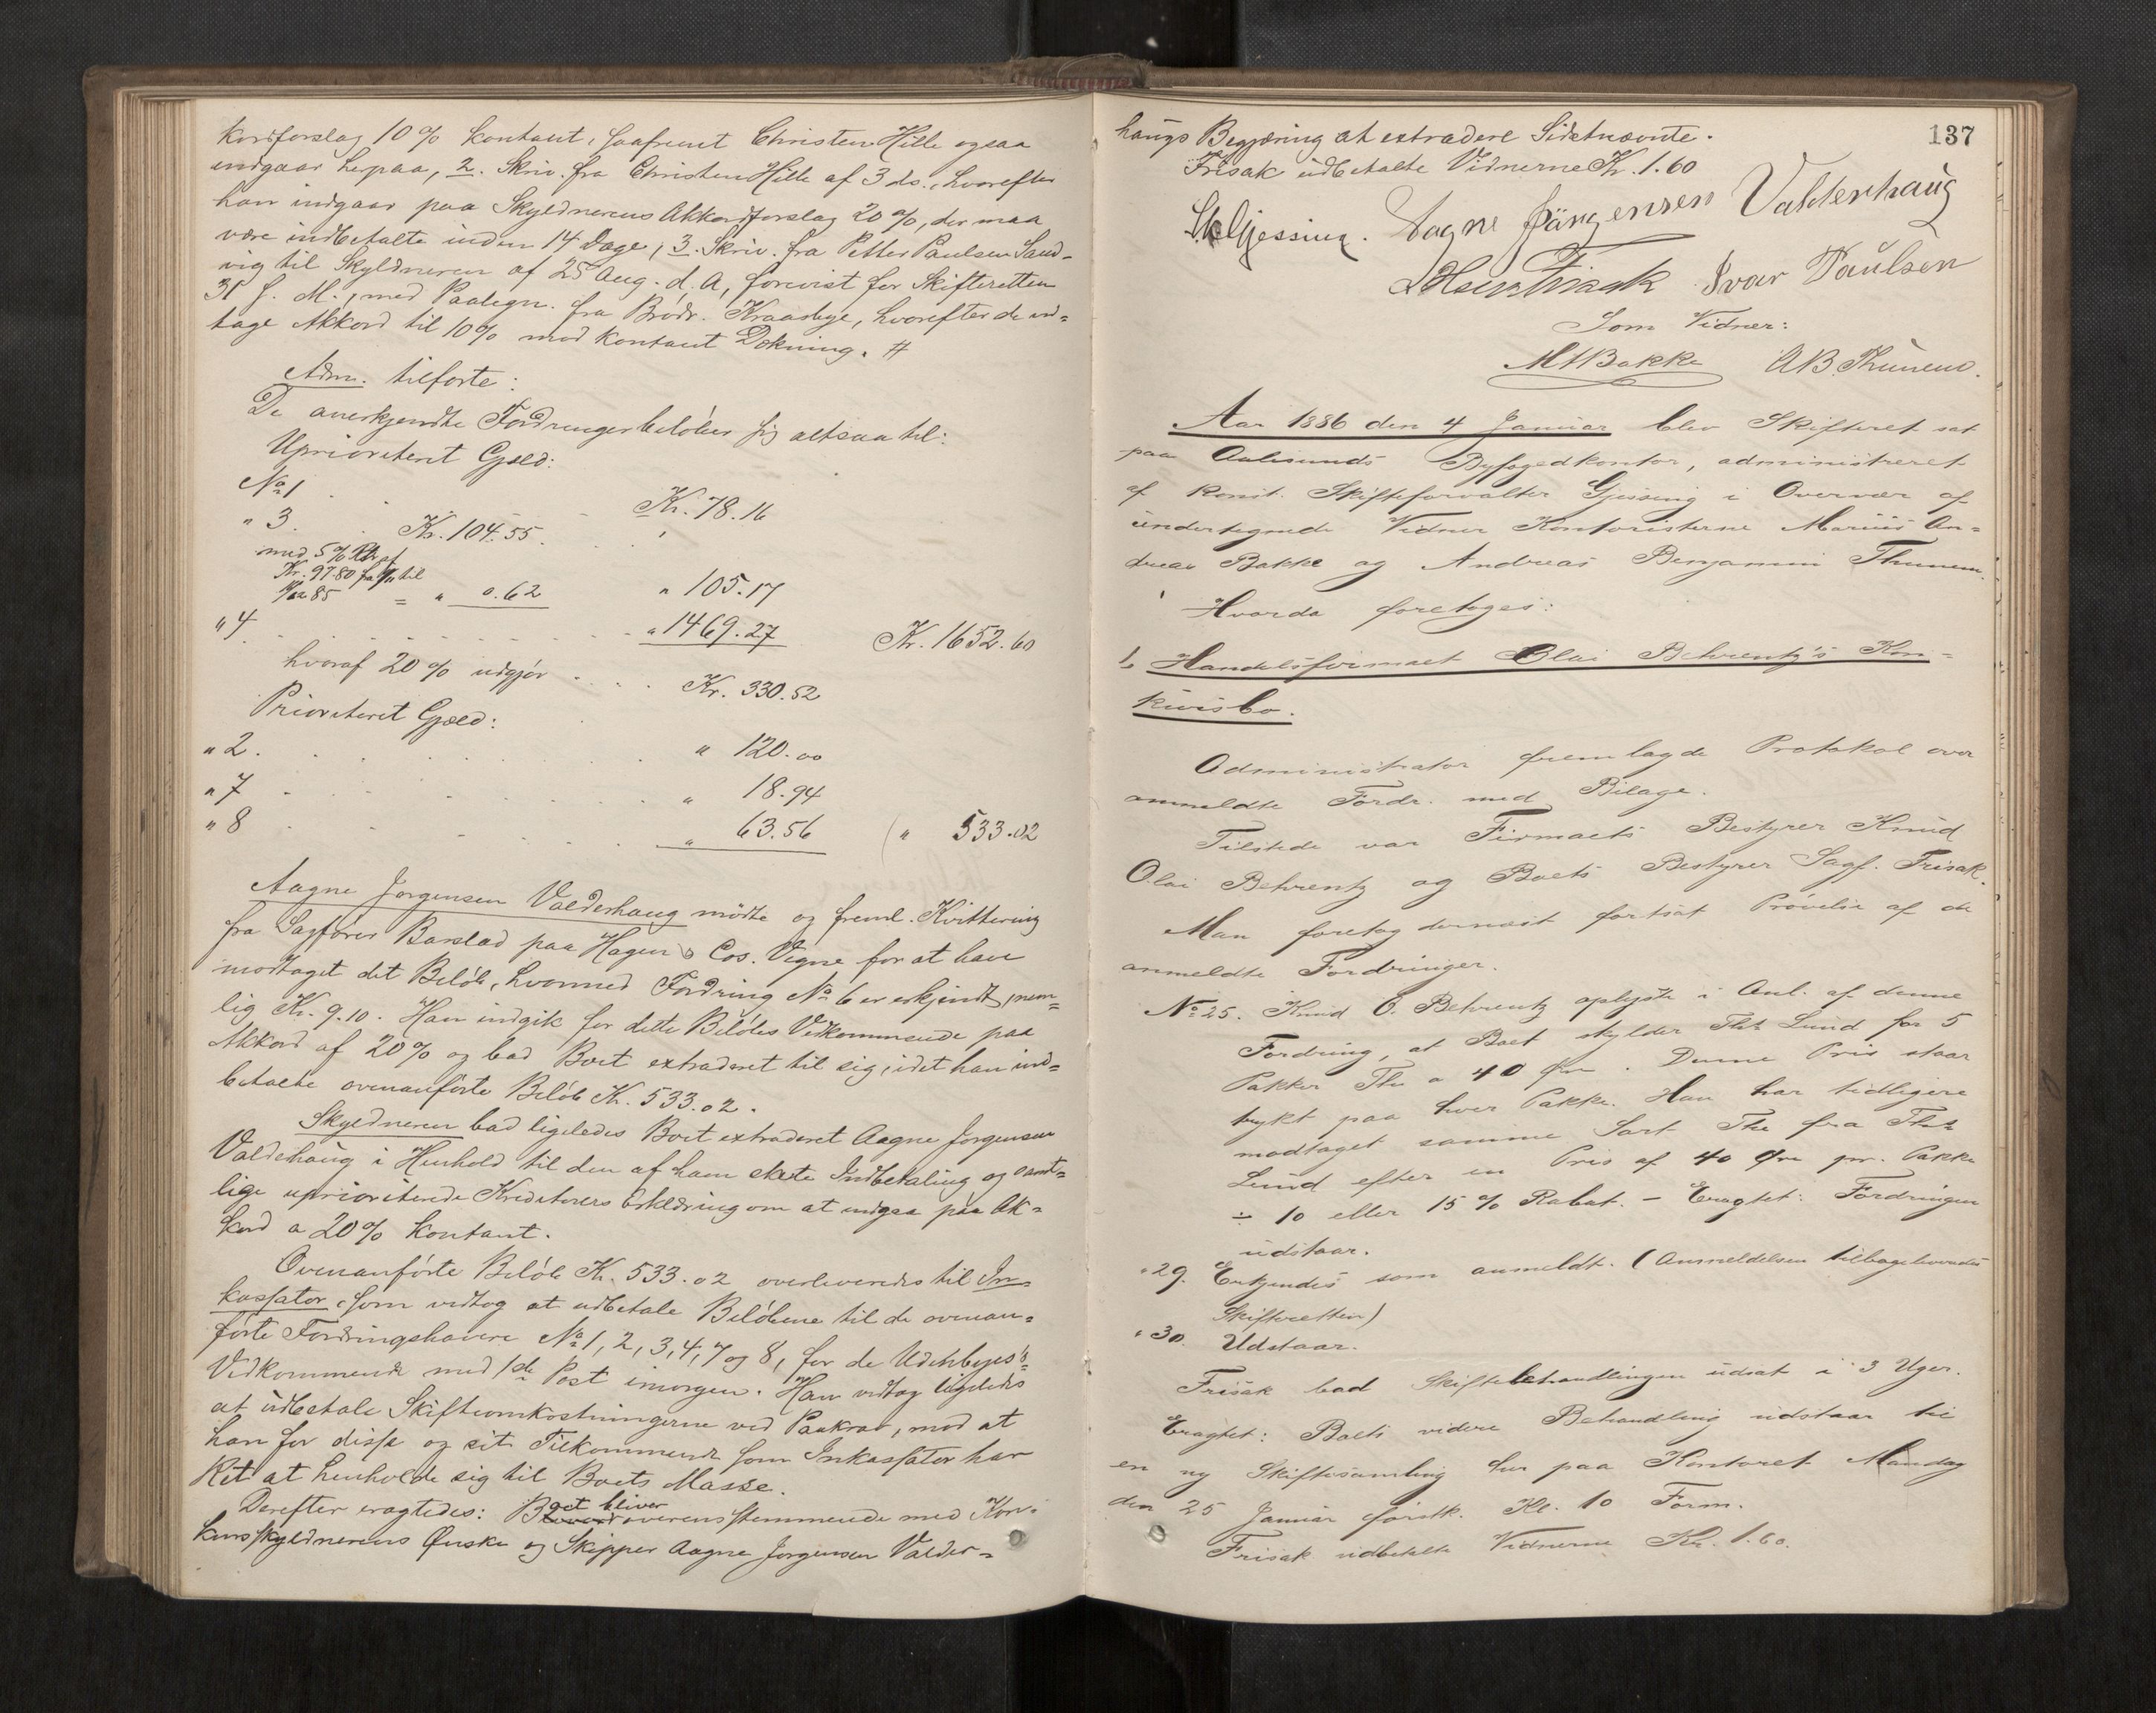 kordforslag 10 % kontant, saafremt Christen Hille ogsaa
indgaar herpaa, 2. Skriv. fra Christen Hille af 3 ds., hvorefter
han indgaar paa Skyldnerens Akkordforslag 20 %, der maa
være indbetalte inden 14 Dage, 3. Skriv. fra Petter Paulsen Sand-
vig til Skyldneren af 25 Aug. d. A, forevist for Skifteretten
31 f. M., med Paategn. fra Brödr. Kraasbye, hvorefter de ved-
tage Akkord til 10 % mod kontant Dækning. #
Adm. tilförte:
De anerkjendte Fordringer belöber sig altsaa til:
Uprioriteret Gjæld:
No 1 Kr. 78.16
" 3. Kr. 104.55
med 5 % Rtr af
Kr. 97.80 fra til
85 = " 0.62 " 105.17
" 4 " 1469.27 Kr. 1652.60
hvoraf 20 % udgjör Kr. 330.52
Prioriteret Gjæld:
" 2. " 120.00
" 7 " 18.94
" 8 " 63.56 " 533.02
Aagne Jorgensen Valderhaug mödte og freml. Kvittering
fra Sagförer Barstad paa Hagen & Cos. Vegne for at have
modtaget det Belöb, hvormed Fordring No 6 er erkjendt, nem-
lig Kr. 9.10. Han indgik for dette Belöbs Vedkommende paa
Akkord af 20 % og bad Boet extraderet til sig, idet han ind-
betalte ovenanförte Belöb Kr. 533.02.
Skyldneren bad ligeledes Boet extraderet Aagne Jorgensen
Valdehaug i Henhold til den af ham skete Indbetaling og samt-
lige uprioriterede Kreditorers Erklæring om at indgaa paa Ak-
kord a 20 % kontant.
Ovenanförte Belöb Kr. 533.02 overleveredes til In-
kassator, som vedtog at udbetale Belöbene til de ovenan-
förte Fordringshavere No 1, 2, 3, 4, 7 og 8, for de Udenbyes's
Vedkommende med 1ste Post imorgen. Han vedtog ligeledes
at udbetale Skifteomkostningerne ved Paakrav, mod at
han for disse og sit Tilkommende som Inkassator har
Ret at henholde sig til Boets Masse.
Derefter eragtedes: Boet bliver overensstemmende med Kon-
kursskyldnerens Ønske og Skipper Aagne Jorgensen Valder-
137
haugs Begjæring at extradere Sidstnævnte.
Frisak udbetalte Vidnerne Kr. 1.60
Gjessing. Aagne Jörgensen Valderhaug
Frisak Ivar Paulsen
Som Vidner:
MABakke AB. Thunem.
Aar 1886 den 4 Januar blev Skifteret sat
paa Aalesunds Byfogedkontor, administreret
af konst. Skifteforvalter Gjessing i Overvær af
undertegnede Vidner Kontoristerne Marius An-
dreas Bakke og Andreas Benjamin Thunem.
Hvorda foretoges:
1. Handelsfirmaet Olai Behrentz's Kon-
kursbo.
Administrator fremlagde Protokol over
anmeldte Fordr. med Bilage.
Tilstede var Firmaets Bestyrer Knud
Olai Behrentz og Boets Bestyrer Sagf. Frisak.
Man foretog dernæst fortsat Prövelse af de
anmeldte Fordringer.
No 25. Knud O. Behrentz oplyste i Anl. af denne
Fordring, at Boet skylder Lund for 5
Pakker The a 40 Øre. Denne Pris staar
trykt paa hver Pakke. Han har tidligere
modtaget samme Sort The fra
Lund efter en Pris af 40 Øre pr. Pakke
÷ 10 eller 15 % Rabat. – Eragtet: Fordringen
udstaar.
" 29. Erkjendes som anmeldt. (Anmeldelsen tilbageleveredes
Skifteretten)
" 30. Udstaar.
Frisak bad Skiftebehandlingen udsat i 3 Uger.
Eragtet: Boets videre Behandling udstaar til
en ny Skiftesamling her paa Kontoret Mandag
den 25 Januar förstk. Kl. 10 Form.
Frisak udbetalte Vidnerne Kr. 1.60.